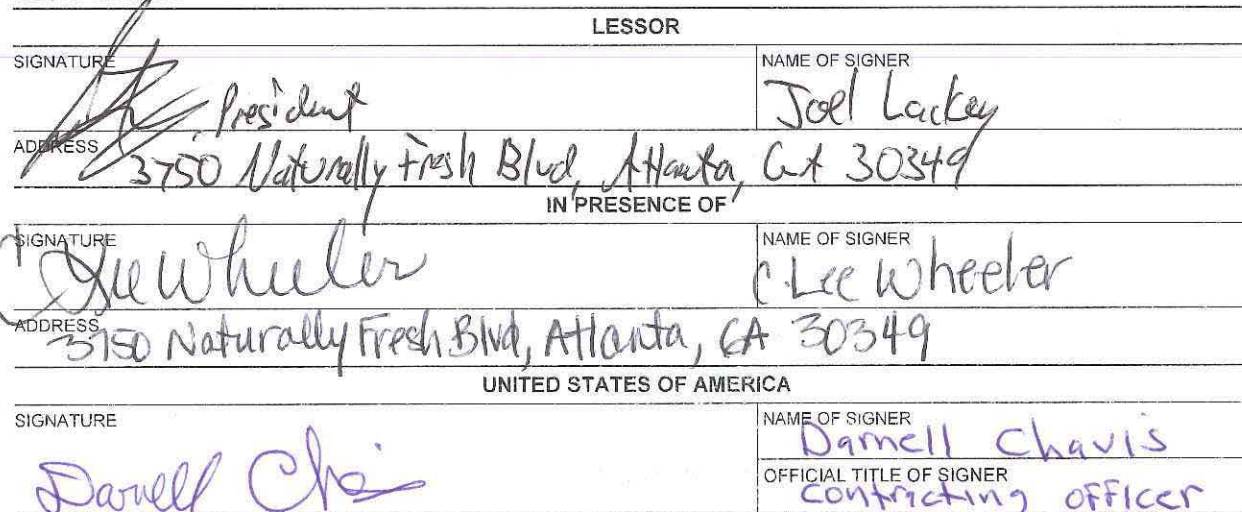 LESSOR
SIGNATURE
, President
NAME OF SIGNER
Joel Lackey
ADDRESS
3750 Naturally Fresh Blvd, Atlanta, GA 30349
IN PRESENCE OF
SIGNATURE
C Lee Wheeler
NAME OF SIGNER
C. Lee Wheeler
ADDRESS
3750 Naturally Fresh Blvd, Atlanta, GA 30349
UNITED STATES OF AMERICA
SIGNATURE
Darnell Chavis
NAME OF SIGNER
Darnell Chavis
OFFICIAL TITLE OF SIGNER
Contracting officer